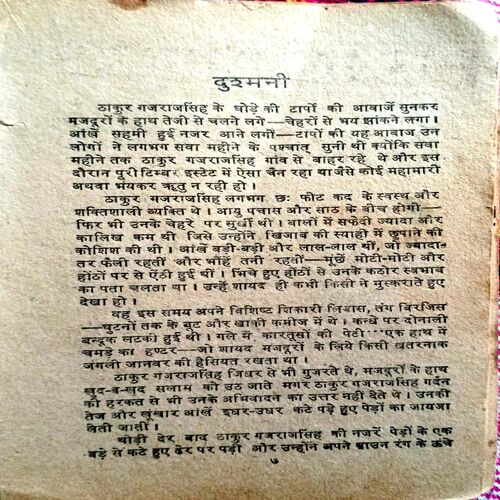 दुश्मनी
ठाकुर गजराजसिंह के घोड़े की टापों की आवाजें सुनकर
मजदूरों के हाथ तेजी से चलने लगे—चेहरों से भय झांकने लगा।
आंखें सहमी हुई नजर आने लगीं—टापों की यह आवाज उन
लोगों ने लगभग सवा महीने के पश्चात् सुनी थी क्योंकि सवा
महीने तक ठाकुर गजराजसिंह गांव से बाहर रहे थे और इस
दौरान पूरी टिम्बर इस्टेट में ऐसा चैन रहा था जैसे कोई महामारी
अथवा भंयकर ऋतु न रही हो।
ठाकुर गजराजसिंह लगभग छः फीट कद के स्वस्थ और
शक्तिशाली व्यक्ति थे। आयु पचास और साठ के बीच होगी—
फिर भी उनके चेहरे पर सुर्खी थी। बालों में सफेदी ज्यादा और
कालिख कम थी जिसे उन्होंने खिजाब की स्याही में छुपाने की
कोशिश की थी। आंखें बड़ी-बड़ी और लाल-लाल थीं, जो ज्यादा-
तर फैली रहतीं और भौंहें तनी रहतीं—मूंछें मोटी-मोटी और
होंठों पर से ऐंठी हुई थीं। भिचे हुए होंठों से उनके कठोर स्वभाव
का पता चलता था। उन्हें शायद ही कभी किसी ने मुस्कराते हुए
देखा हो।
यह इस समय अपने विशिष्ट शिकारी लिबास, तंग बिरजिस
—घुटनों तक के बूट और खाकी कमीज में थे। कन्धे पर दोनाली
बन्दूक लटकी हुई थी। गले में कारतूसों की पेटी...एक हाथ में
चमड़े का हण्टर—जो शायद मजदूरों के लिये किसी खतरनाक
जंगली जानवर की हैसियत रखता था।
ठाकुर गजराजसिंह जिधर से भी गुजरते थे, मजदूरों के हाथ
खुद-ब-खुद सलाम को उठ जाते मगर ठाकुर गजराजसिंह गर्दन
की हरकत से भी उनके अभिवादन का उत्तर नहीं देते थे। उनकी
तेज और खूंखार आंखें इधर-उधर कटे पड़े हुए पेड़ों का जायजा
लेती जातीं।
थोड़ी देर बाद ठाकुर गजराजसिंह की नजरें पेड़ों के एक
बड़े से कटे हुए ढेर पर पड़ी और उन्होंने अपने ब्राउन रंग के ऊंचे
७